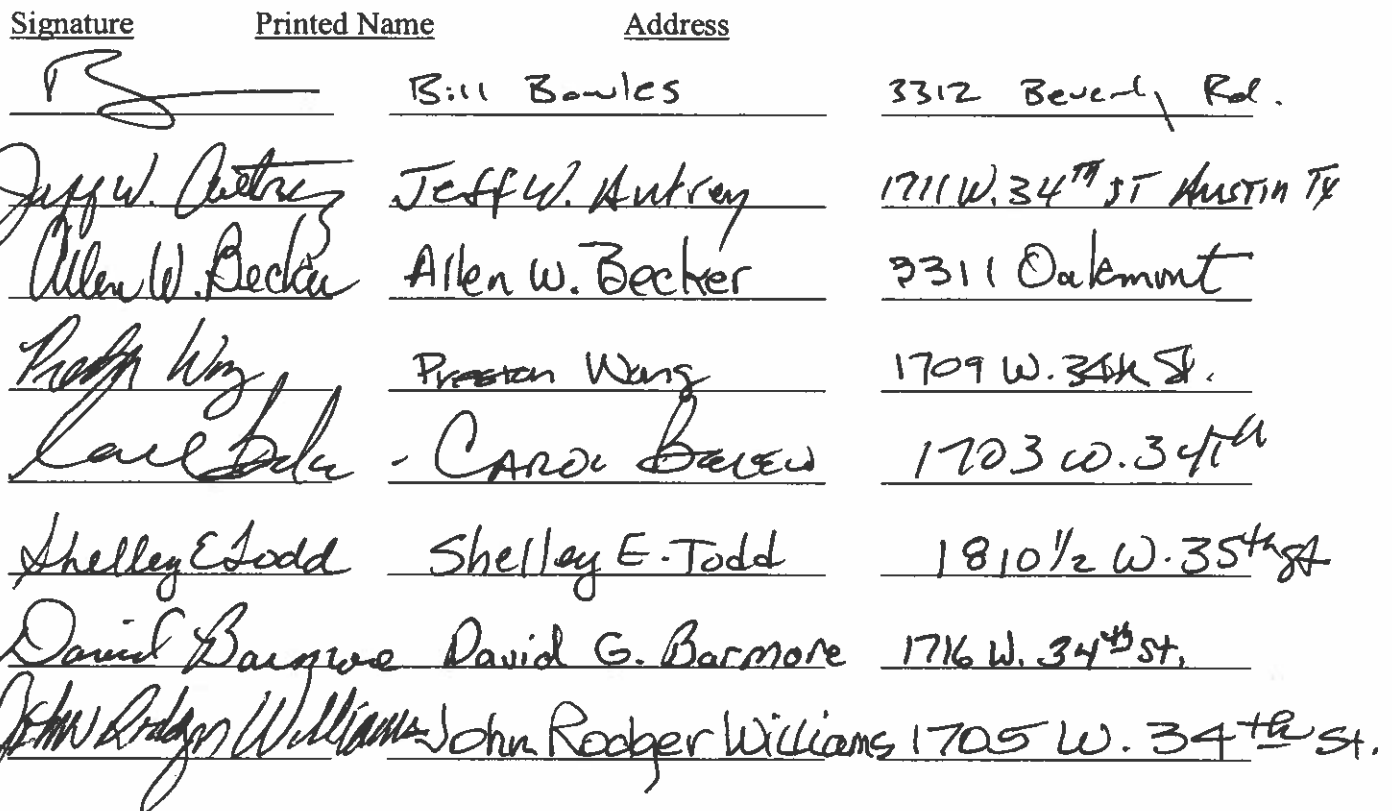 Signature Printed Name Address
Bill Bowles 3312 Beverly Rd.
Jeff W. Autrey Jeff W. Autrey 1711 W. 34TH ST Austin TX
Allen W. Becker Allen W. Becker 3311 Oakmont
Preston Wang Preston Wang 1709 W. 34th St.
Carol - CAROL BELEW 1703 W. 34th
Shelley E Todd Shelley E. Todd 1810 1/2 W. 35th St
David Barmore David G. Barmore 1716 W. 34th St.
John Rodger Williams John Rodger Williams 1705 W. 34th St.